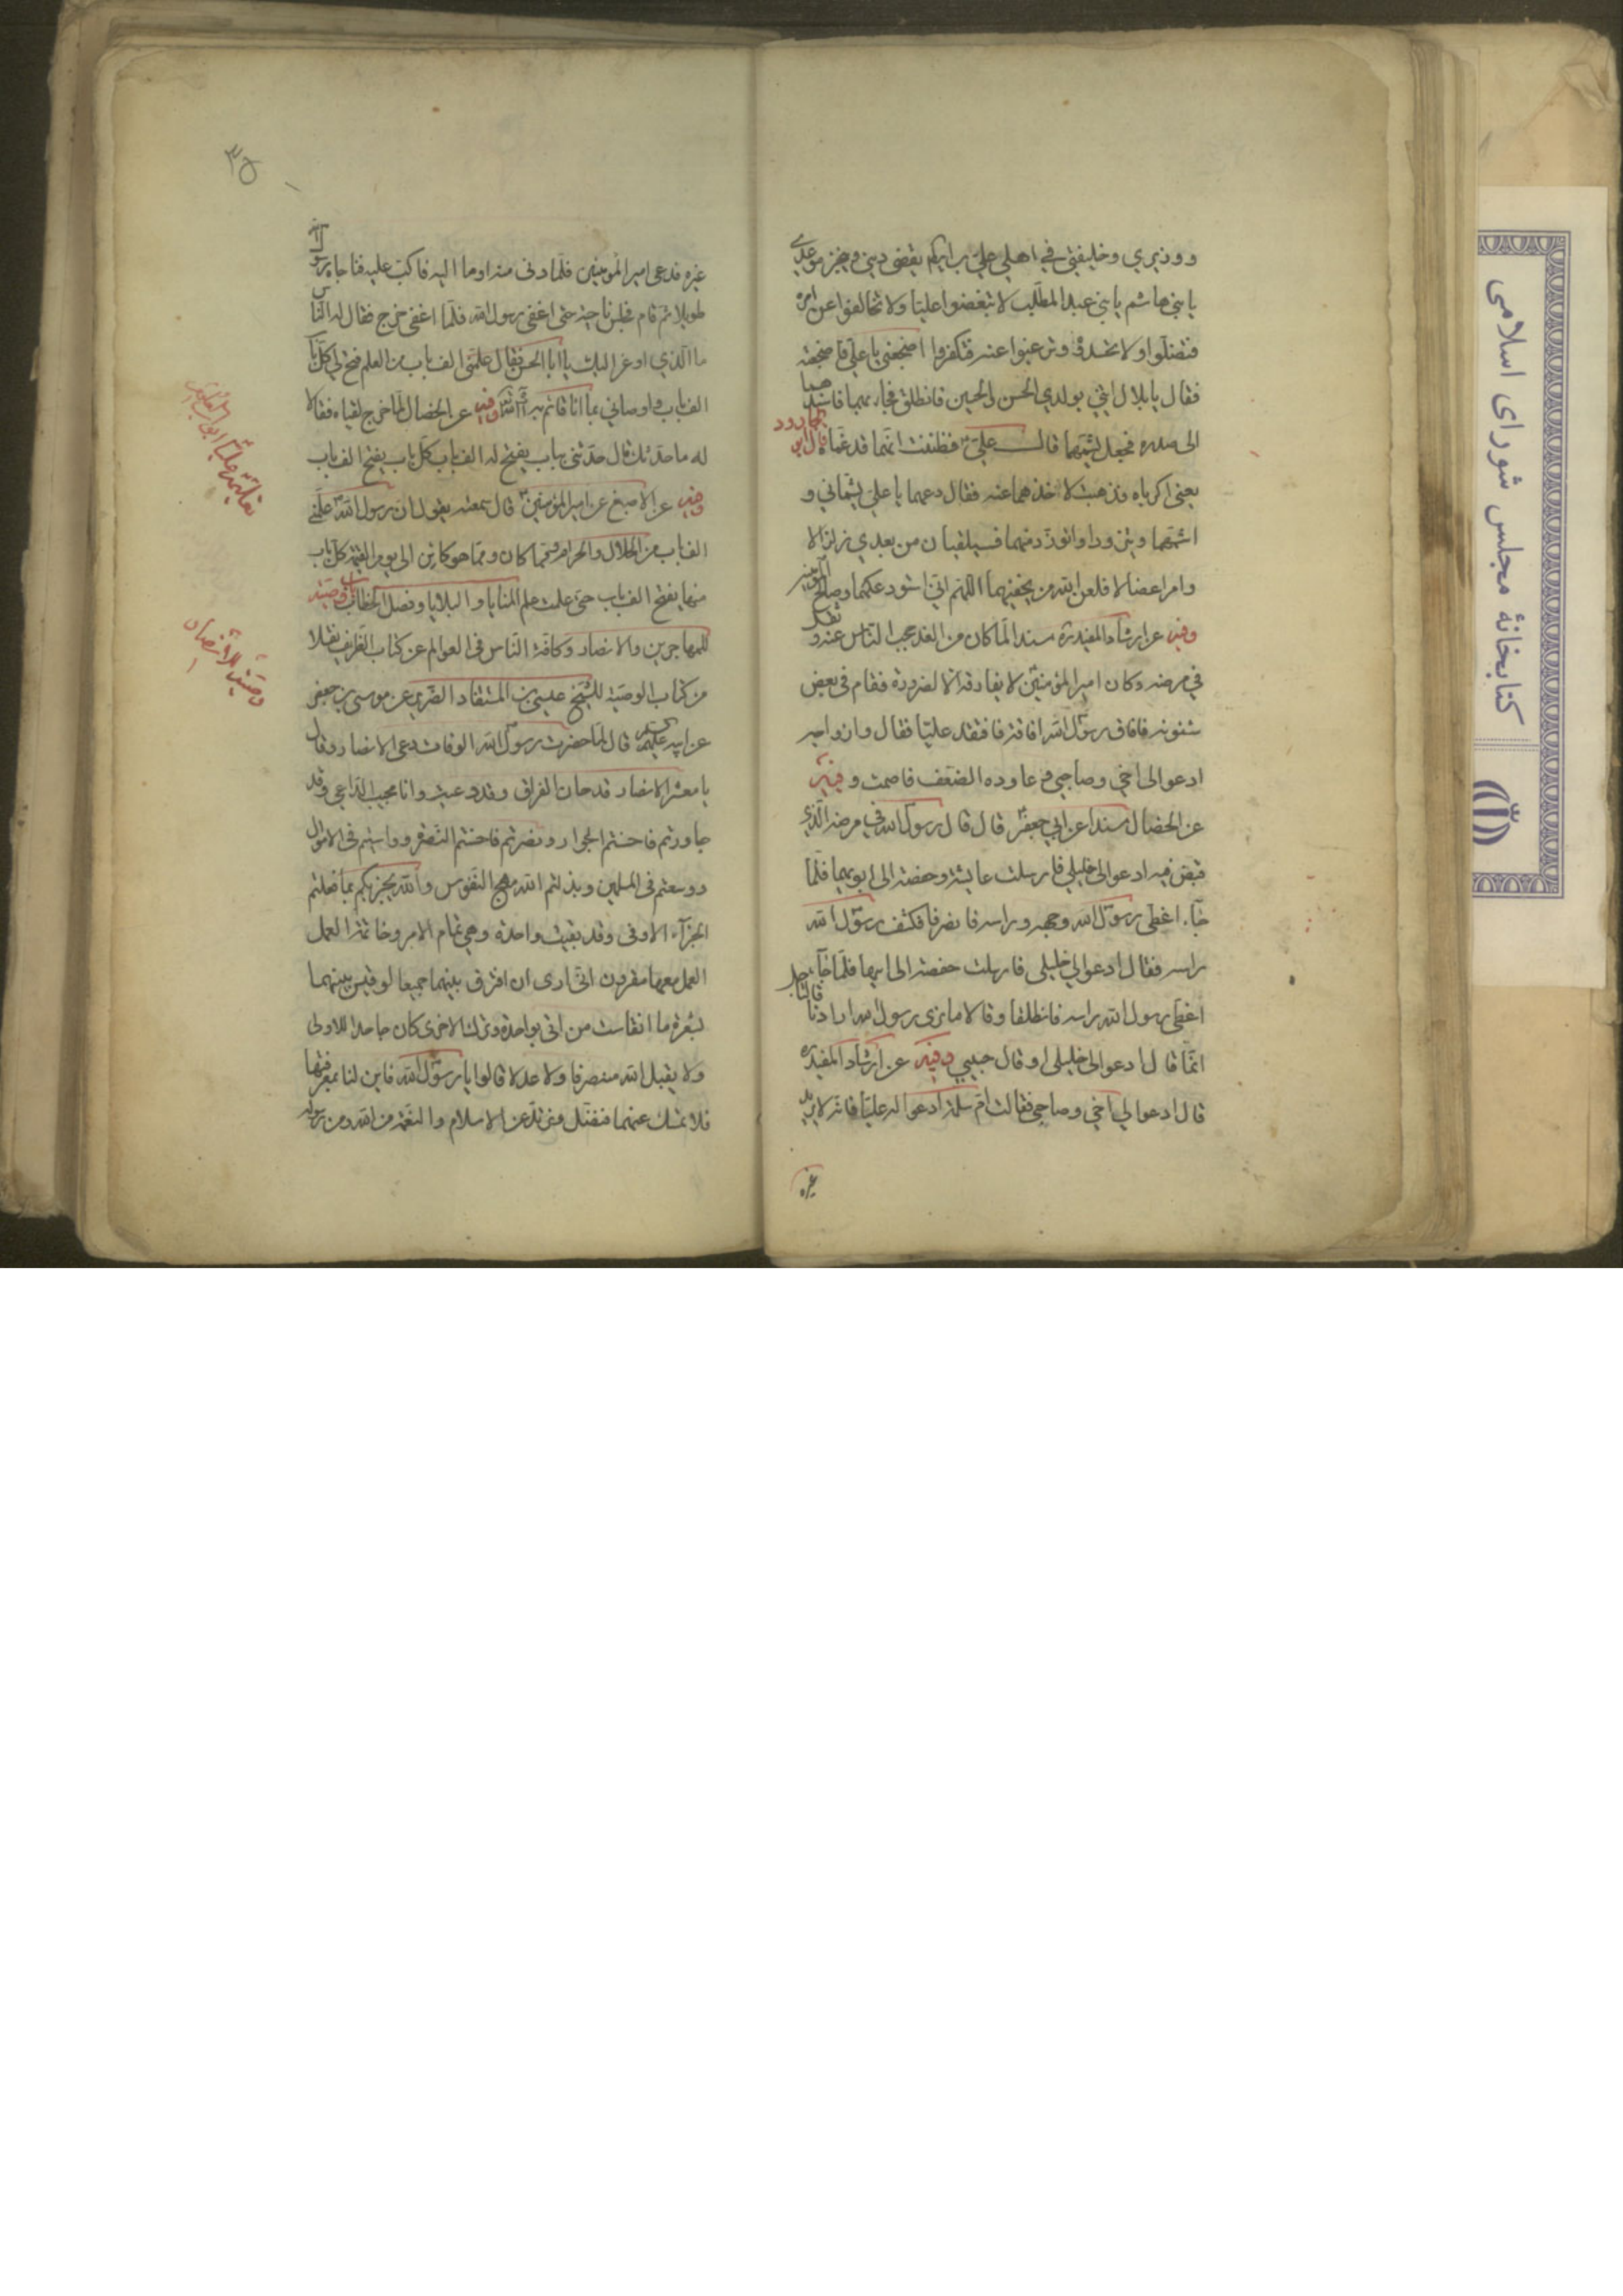 ووزيري وخليفتي في اهلي علي بن ابيكم يقضي ديني وينجز موعدي
يا بني هاشم يا بني عبد المطلب لا تبغضوا عليا ولا تخالفوا عن امره
فتضلوا ولا تحسدوه وترغبوا عنه فتكفروا اضجعني يا علي فاضجعته
فقال يا بلال ائتني بولدي الحسن والحسين فانطلق فجاء بهما فاسندهما
الى صدره فجعل يشمهما قال علي فظننت انهما قد غماه قال ابو الجارود
يعني اكرباه فذهبت لاخذهما عنه فقال دعهما يا علي يشماني و
اشمهما ويتزودا واتزود منهما فسيلقيان من بعدي زلزالا
وامرا عضالا فلعن الله من يخيفهما اللهم اني استودعكهما وصالح المؤمنين
وفيه عن ارشاد المفيد مسندا لما كان من الغد حجب الناس عنه وثقل
في مرضه وكان امير المؤمنين لا يفارقه الا لضرورة فقام في بعض
شئونه فافاق رسول الله افاقة فافتقد عليا فقال وازواجه
ادعوا لي اخي وصاحبي وعاوده الضعف فاصمت وفيه
عن الخصال مسندا عن ابي جعفر قال قال رسول الله في مرضه الذي
قبض فيه ادعوا لي خليلي فارسلت عايشة وحفصة الى ابويهما فلما
جاء اغطى رسول الله وجهه وراسه فانصرفا فكشف رسول الله
راسه فقال ادعوا لي خليلي فارسلت حفصة الى ابيها فلما جاء
اغطى رسول الله راسه فانطلقا وقالا ما نرى رسول الله ارادنا
انما قال ادعوا لي خليلي او قال حبيبي وفيه عن ارشاد المفيد
قال ادعوا لي اخي وصاحبي فقالت ام سلمة ادعوا له عليا فانه لا يريد
غيره
٣٥
غيره فدعي امير المؤمنين فلما دنى منه اوما اليه فاكب عليه فناجاه رسول الله
طويلا ثم قام فجلس ناحية حتى اغفى رسول الله فلما اغفى خرج فقال له الناس
ما الذي اوعز اليك يا ابا الحسن فقال علمني الف باب من العلم فتح لي كل باب
الف باب واوصاني بما انا قائم به ان شاء الله وفيه عن الخصال لما خرج لقياه فقالا
له ما حدثك قال حدثني بباب يفتح له الف باب كل باب يفتح الف باب
وفيه عن الاصبغ عن امير المؤمنين قال سمعته يقول ان رسول الله علمني
الف باب من الحلال والحرام ومما كان ومما هو كائن الى يوم القيمة كل باب
منها يفتح الف باب حتى علمت علم المنايا والبلايا وفصل الخطاب وصيته
للمهاجرين والانصار وكافة الناس في العوالم عن كتاب الطرايف نقلا
من كتاب الوصية للشيخ عيسى بن المستفاد الضرير عن موسى بن جعفر
عن ابيه قال لما حضرت رسول الله الوفات دعى الانصار وقال
يا معشر الانصار قد حان الفراق وقد دعيت وانا مجيب الداعي وقد
جاورتم فاحسنتم الجوار ونصرتم فاحسنتم النصرة وواسيتم في الاموال
ووسعتم في المسلمين وبذلتم لله مهج النفوس والله يجزيكم بما فعلتم
الجزاء الاوفى وقد بقيت واحدة وهي تمام الامر وخاتمة العمل
العمل معها مقرون اني ارى ان افترق بينهما جميعا لو قيس بينهما
بشعرة ما انقاست من اتى بواحدة وترك الاخرى كان جاحدا للاولى
ولا يقبل الله منه صرفا ولا عدلا قالوا يا رسول الله فاين لنا بمعرفتها
فلا نمسك عنها فنضل ونرتد عن الاسلام والنعمة من الله ومن رسوله
وصيته للانصار
كتابخانهٔ مجلس شورای اسلامی